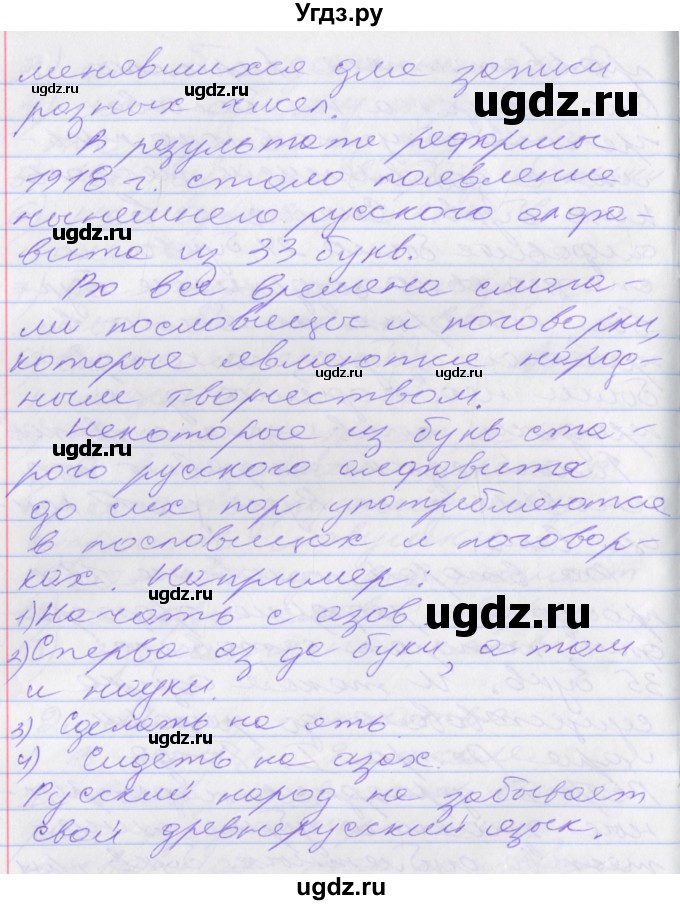 Угдз.ру
менявшихся для записи
разных чисел.
В результате реформы
1918 г. стало появление
нынешнего русского алфа-
вита из 33 букв.
Во все времена слага-
ли пословицы и поговорки,
которые являются народ-
ным творчеством.
Некоторые из букв ста-
рого русского алфавита
до сих пор употребляются
в пословицах и поговор-
ках. Например:
1) Начать с азов
2) Сперва аз да буки, а там
и науки.
3) Сделать на ять.
4) Сидеть на азах.
Русский народ не забывает
свой древнерусский язык.
ugdz.ru
ugdz.ru
ugdz.ru
ugdz.ru
ugdz.ru
ugdz.ru
ugdz.ru
ugdz.ru
ugdz.ru
ugdz.ru
ugdz.ru
ugdz.ru